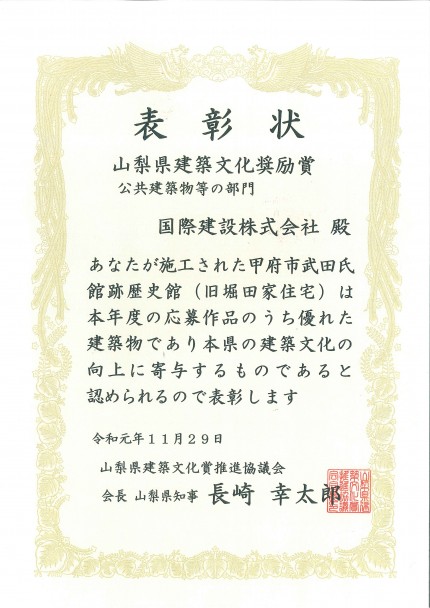 表彰状
山梨県建築文化奨励賞
公共建築物等の部門
国際建設株式会社 殿
あなたが施工された甲府市武田氏
館跡歴史館（旧堀田家住宅）は
本年度の応募作品のうち優れた
建築物であり本県の建築文化の
向上に寄与するものであると
認められるので表彰します
令和元年11月29日
山梨県建築文化賞推進協議会
会長 山梨県知事 長崎 幸太郎